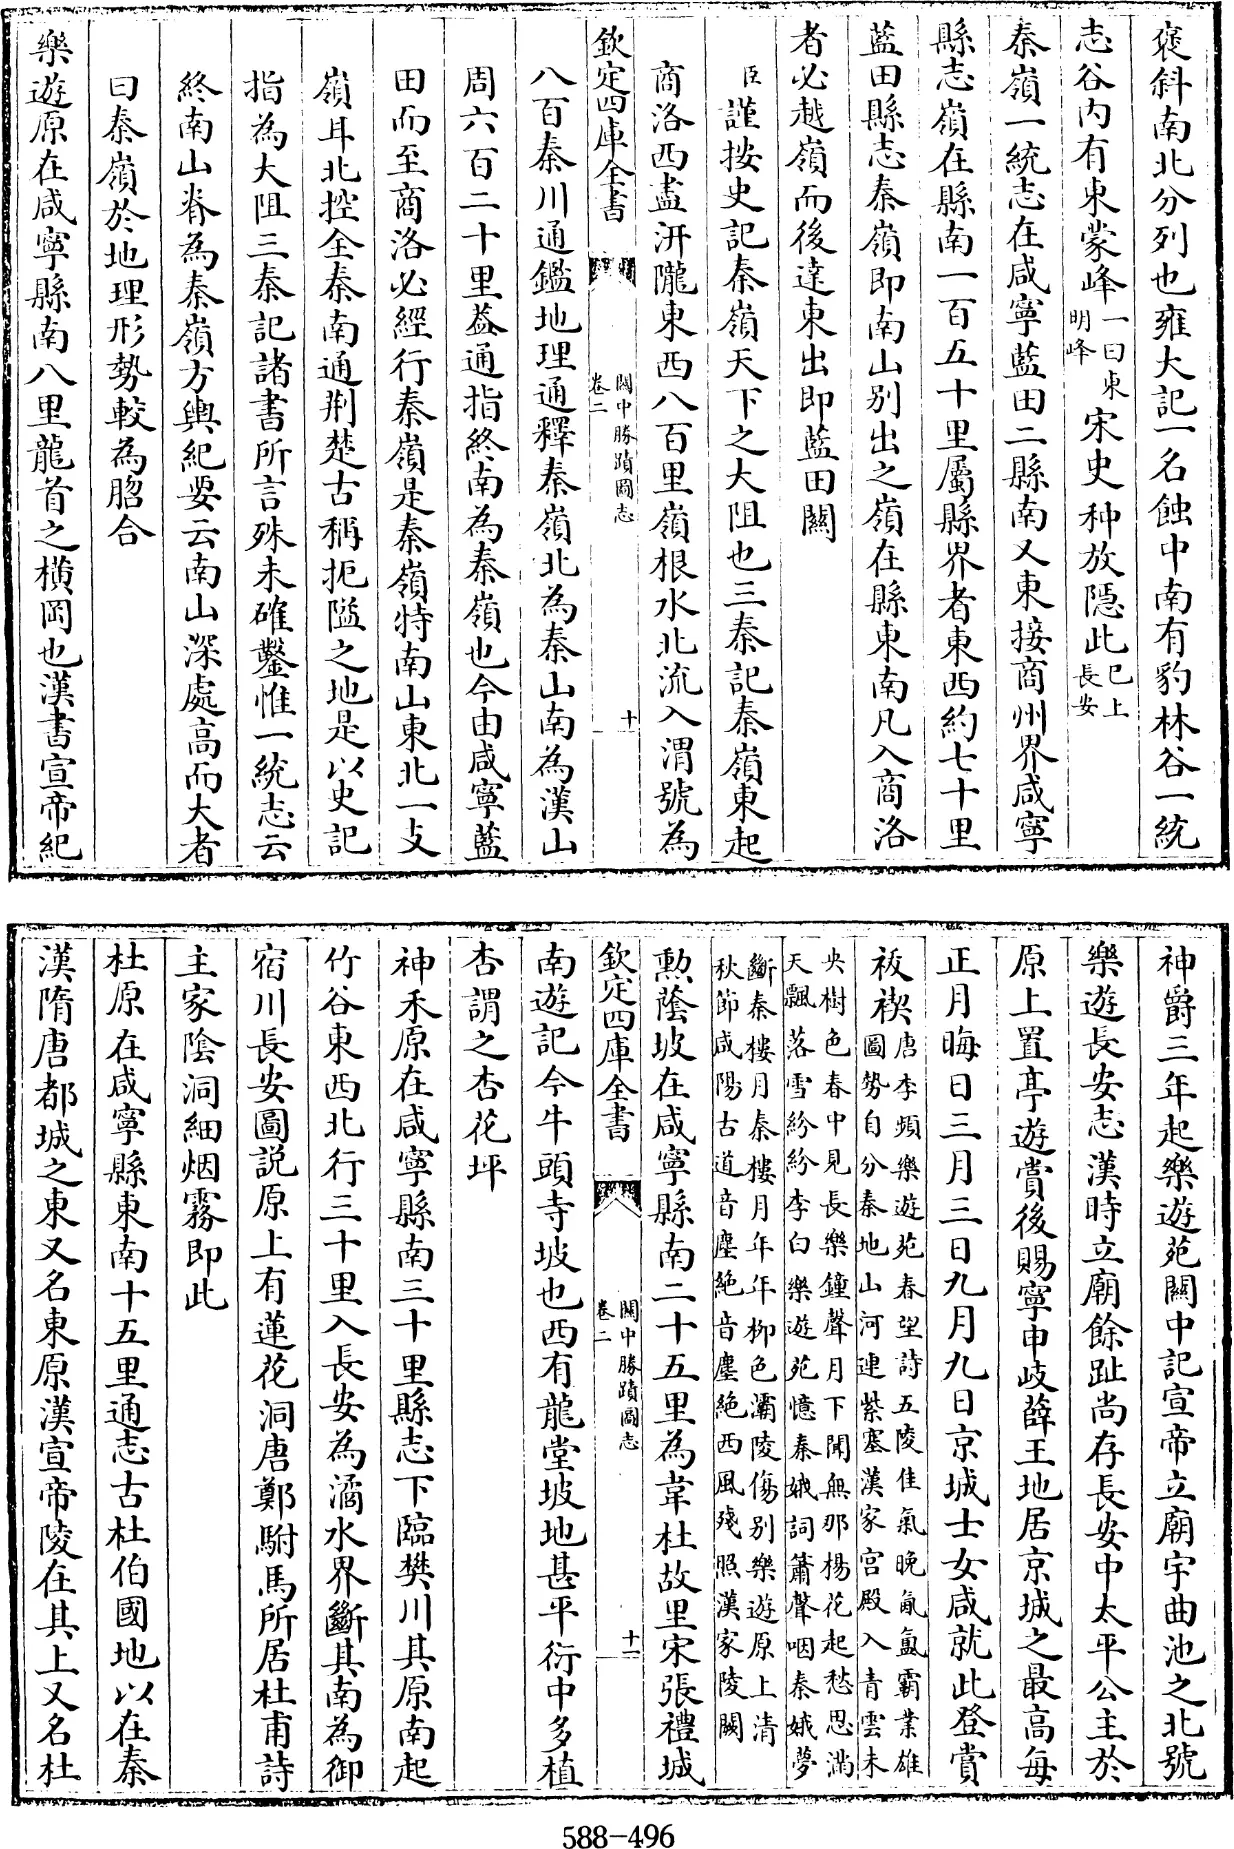 襃斜南北分列也雍大記一名蝕中南有豹林谷一統
志谷内有東蒙峰一曰東明峰宋史种放隱此已上長安
秦嶺一統志在咸寧藍田二縣南又東接商州界咸寧
縣志嶺在縣南一百五十里屬縣界者東西約七十里
藍田縣志秦嶺即南山别出之嶺在縣東南凡入商洛
者必越嶺而後達東出即藍田關
臣謹按史記秦嶺天下之大阻也三秦記秦嶺東起
商洛西盡汧隴東西八百里嶺根水北流入渭號為
欽定四庫全書
關中勝蹟圖志
卷二
十
八百秦川通鑑地理通釋秦嶺北為秦山南為漢山
周六百二十里葢通指終南為秦嶺也今由咸寧藍
田而至商洛必經行秦嶺是秦嶺特南山東北一支
嶺耳北控全秦南通荆楚古稱扼隘之地是以史記
指為大阻三秦記諸書所言殊未確鑿惟一統志云
終南山脊為秦嶺方輿紀要云南山深處高而大者
曰秦嶺於地理形勢較為脗合
樂遊原在咸寧縣南八里龍首之橫岡也漢書宣帝紀
神爵三年起樂遊苑關中記宣帝立廟宇曲池之北號
樂遊長安志漢時立廟餘趾尚存長安中太平公主於
原上置亭遊賞後賜寧申岐薛王地居京城之最高每
正月晦日三月三日九月九日京城士女咸就此登賞
祓禊唐李頻樂遊苑春望詩五陵佳氣晩氤氲霸業雄
圖勢自分秦地山河連紫塞漢家宫殿入青雲未
央樹色春中見長樂鐘聲月下聞無那楊花起愁思滿
天飄落雪紛紛李白樂遊苑憶秦娥詞簫聲咽秦娥夢
斷秦樓月秦樓月年年柳色灞陵傷别樂遊原上清
秋節咸陽古道音塵絶音塵絶西風殘照漢家陵闕
勲蔭坡在咸寧縣南二十五里為韋杜故里宋張禮城
欽定四庫全書
關中勝蹟圖志
卷二
十一
南遊記今牛頭寺坡也西有龍堂坡地甚平衍中多植
杏謂之杏花坪
神禾原在咸寧縣南三十里縣志下臨樊川其原南起
竹谷東西北行三十里入長安為潏水界斷其南為御
宿川長安圖説原上有蓮花洞唐鄭駙馬所居杜甫詩
主家陰洞細烟霧即此
杜原在咸寧縣東南十五里通志古杜伯國地以在秦
漢隋唐都城之東又名東原漢宣帝陵在其上又名杜
588-496